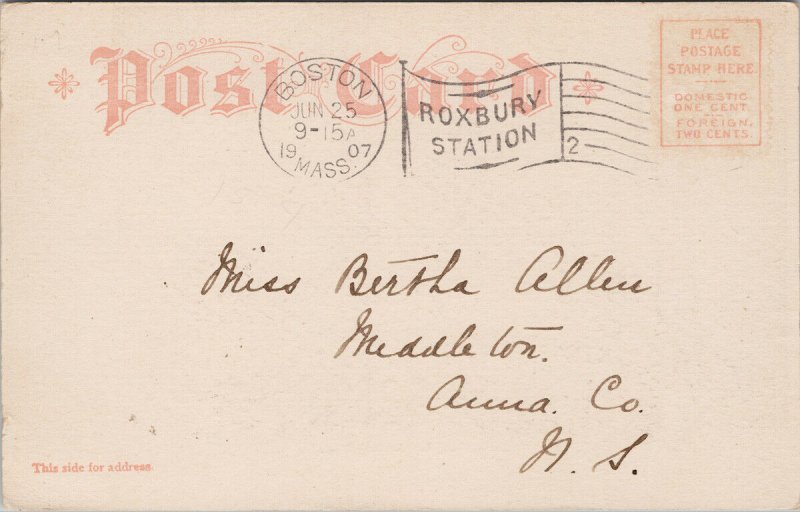 Post Card
BOSTON
JUN 25
9-15A
19 07
MASS.
ROXBURY
STATION
2
PLACE
POSTAGE
STAMP HERE.
DOMESTIC
ONE CENT.
FOREIGN,
TWO CENTS.
Miss Bertha Allen
Middleton.
Anna. Co.
N. S.
This side for address